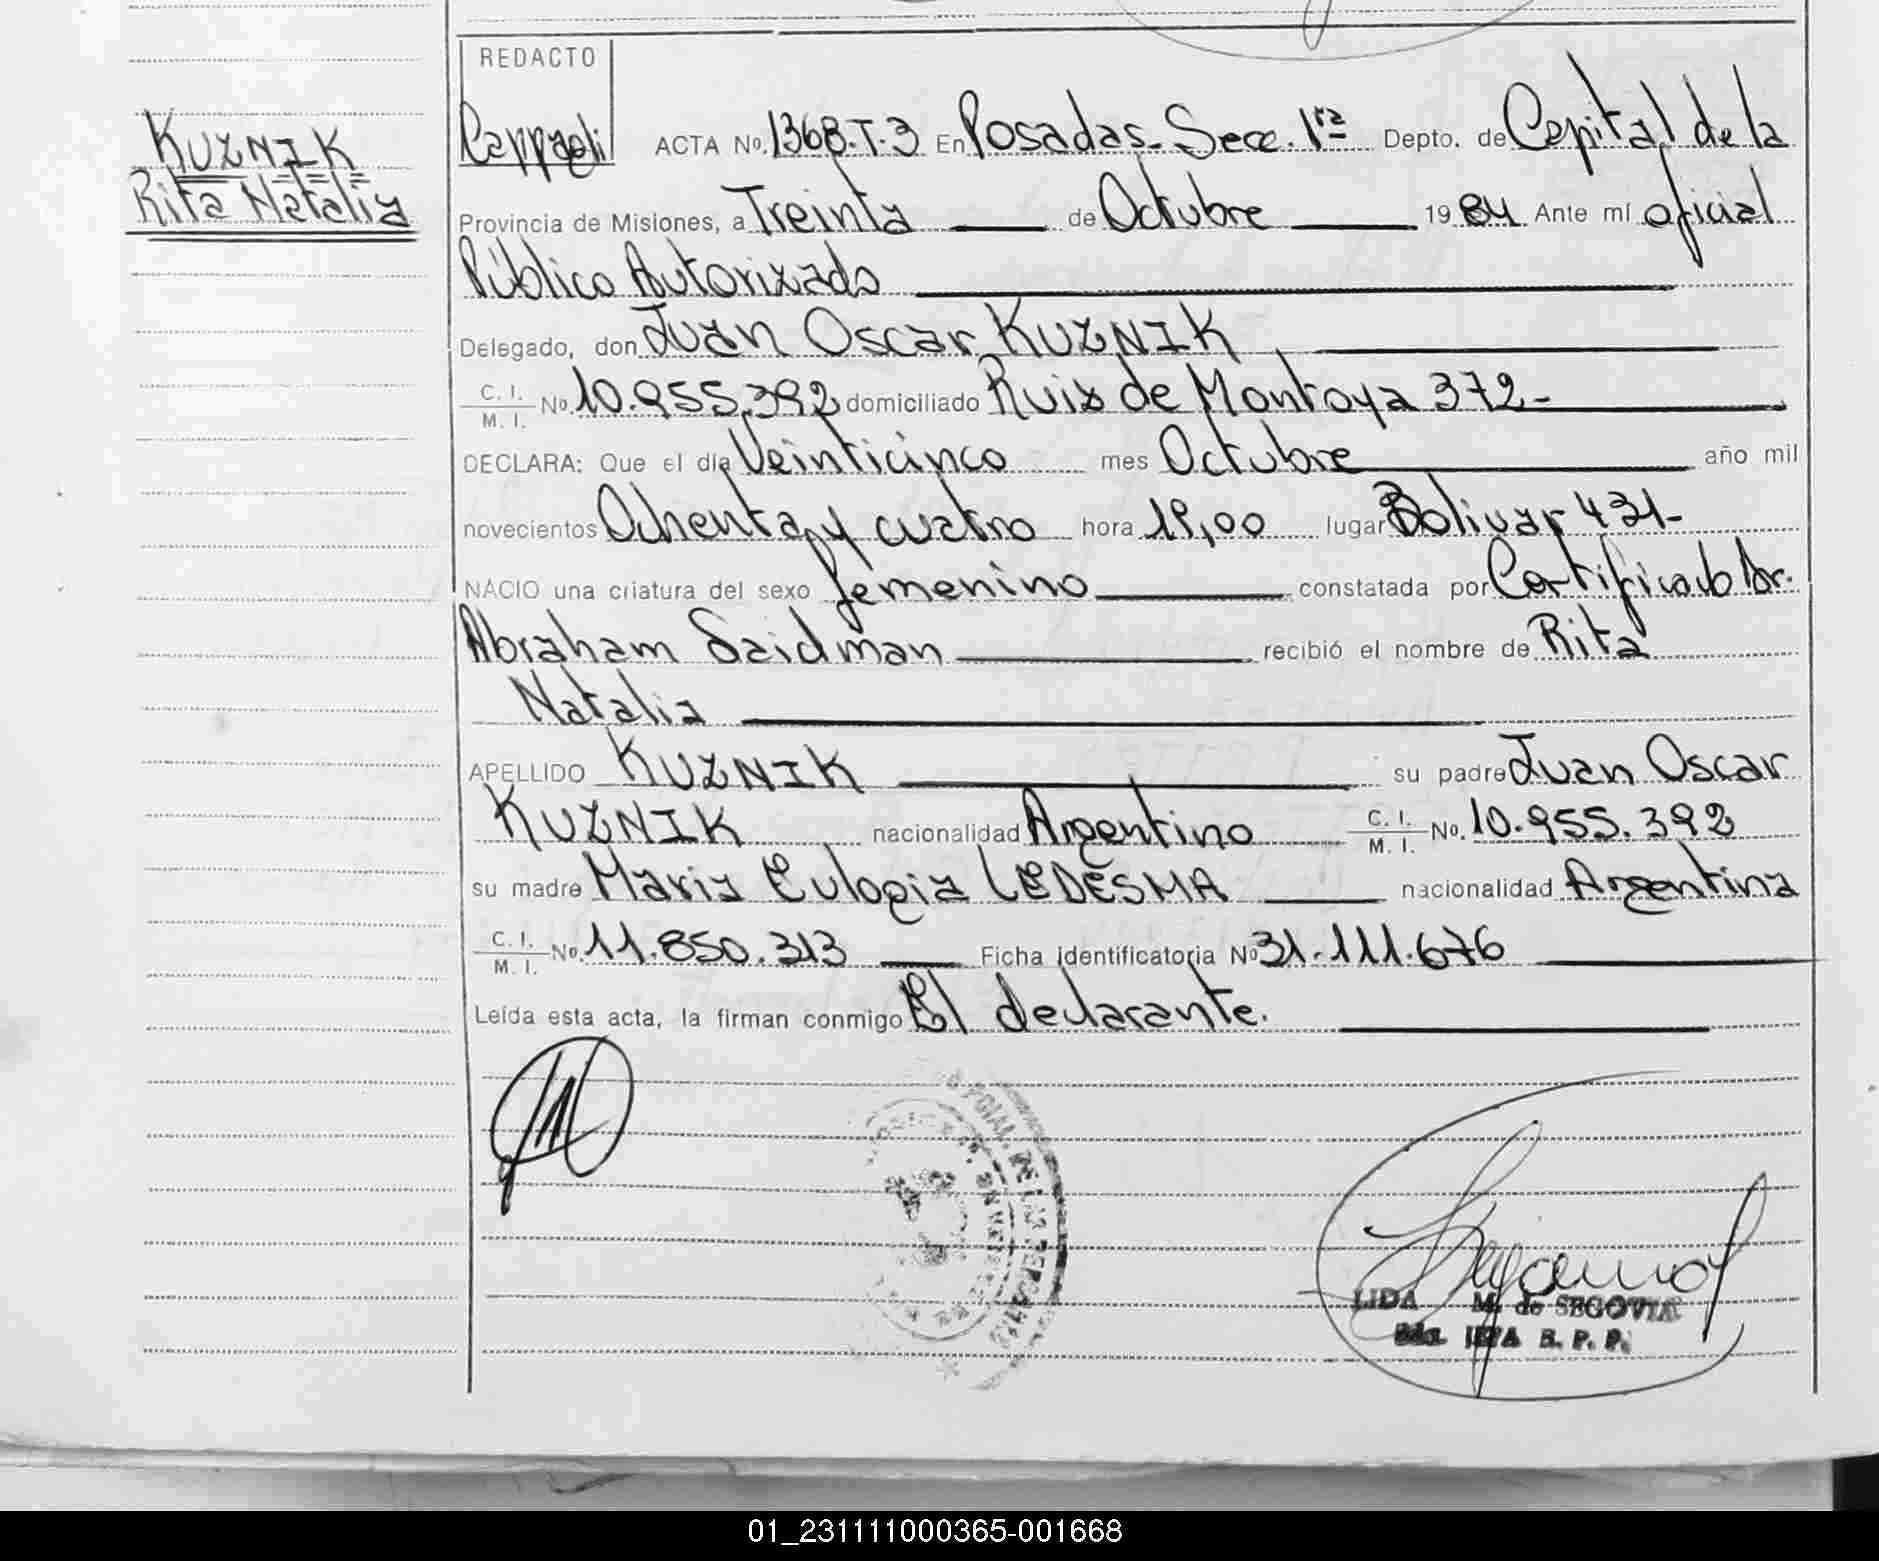 REDACTO
KUZNIK
Rita Natalia
ACTA No. 1368-T-3 En Posadas-Secc. 1ra Depto. de Capital de la
Provincia de Misiones, a Treinta de Octubre 1984 Ante mí oficial
Público Autorizado
Delegado, don Juan Oscar KUZNIK
C. I. / M. I. No. 10.955.392 domiciliado Ruiz de Montoya 372-
DECLARA: Que el día Veinticinco mes Octubre año mil
novecientos Ochenta y cuatro hora 19,00 lugar Bolivar 431-
NACIO una criatura del sexo femenino constatada por Certificado Dr.
Abraham Saidman recibió el nombre de Rita
Natalia
APELLIDO KUZNIK su padre Juan Oscar
KUZNIK nacionalidad Argentino C. I. / M. I. No. 10.955.392
su madre Maria Eulogia LEDESMA nacionalidad Argentina
C. I. / M. I. No. 11.850.313 Ficha Identificatoria No 31.111.676
Leída esta acta, la firman conmigo El declarante.
LIDA M. de SEGOVIA
R. P. P.
01_231111000365-001668